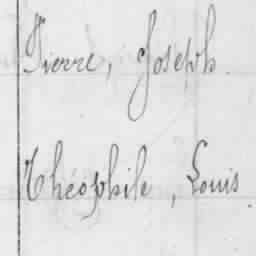 Pierre, Joseph.
Théophile, Louis.